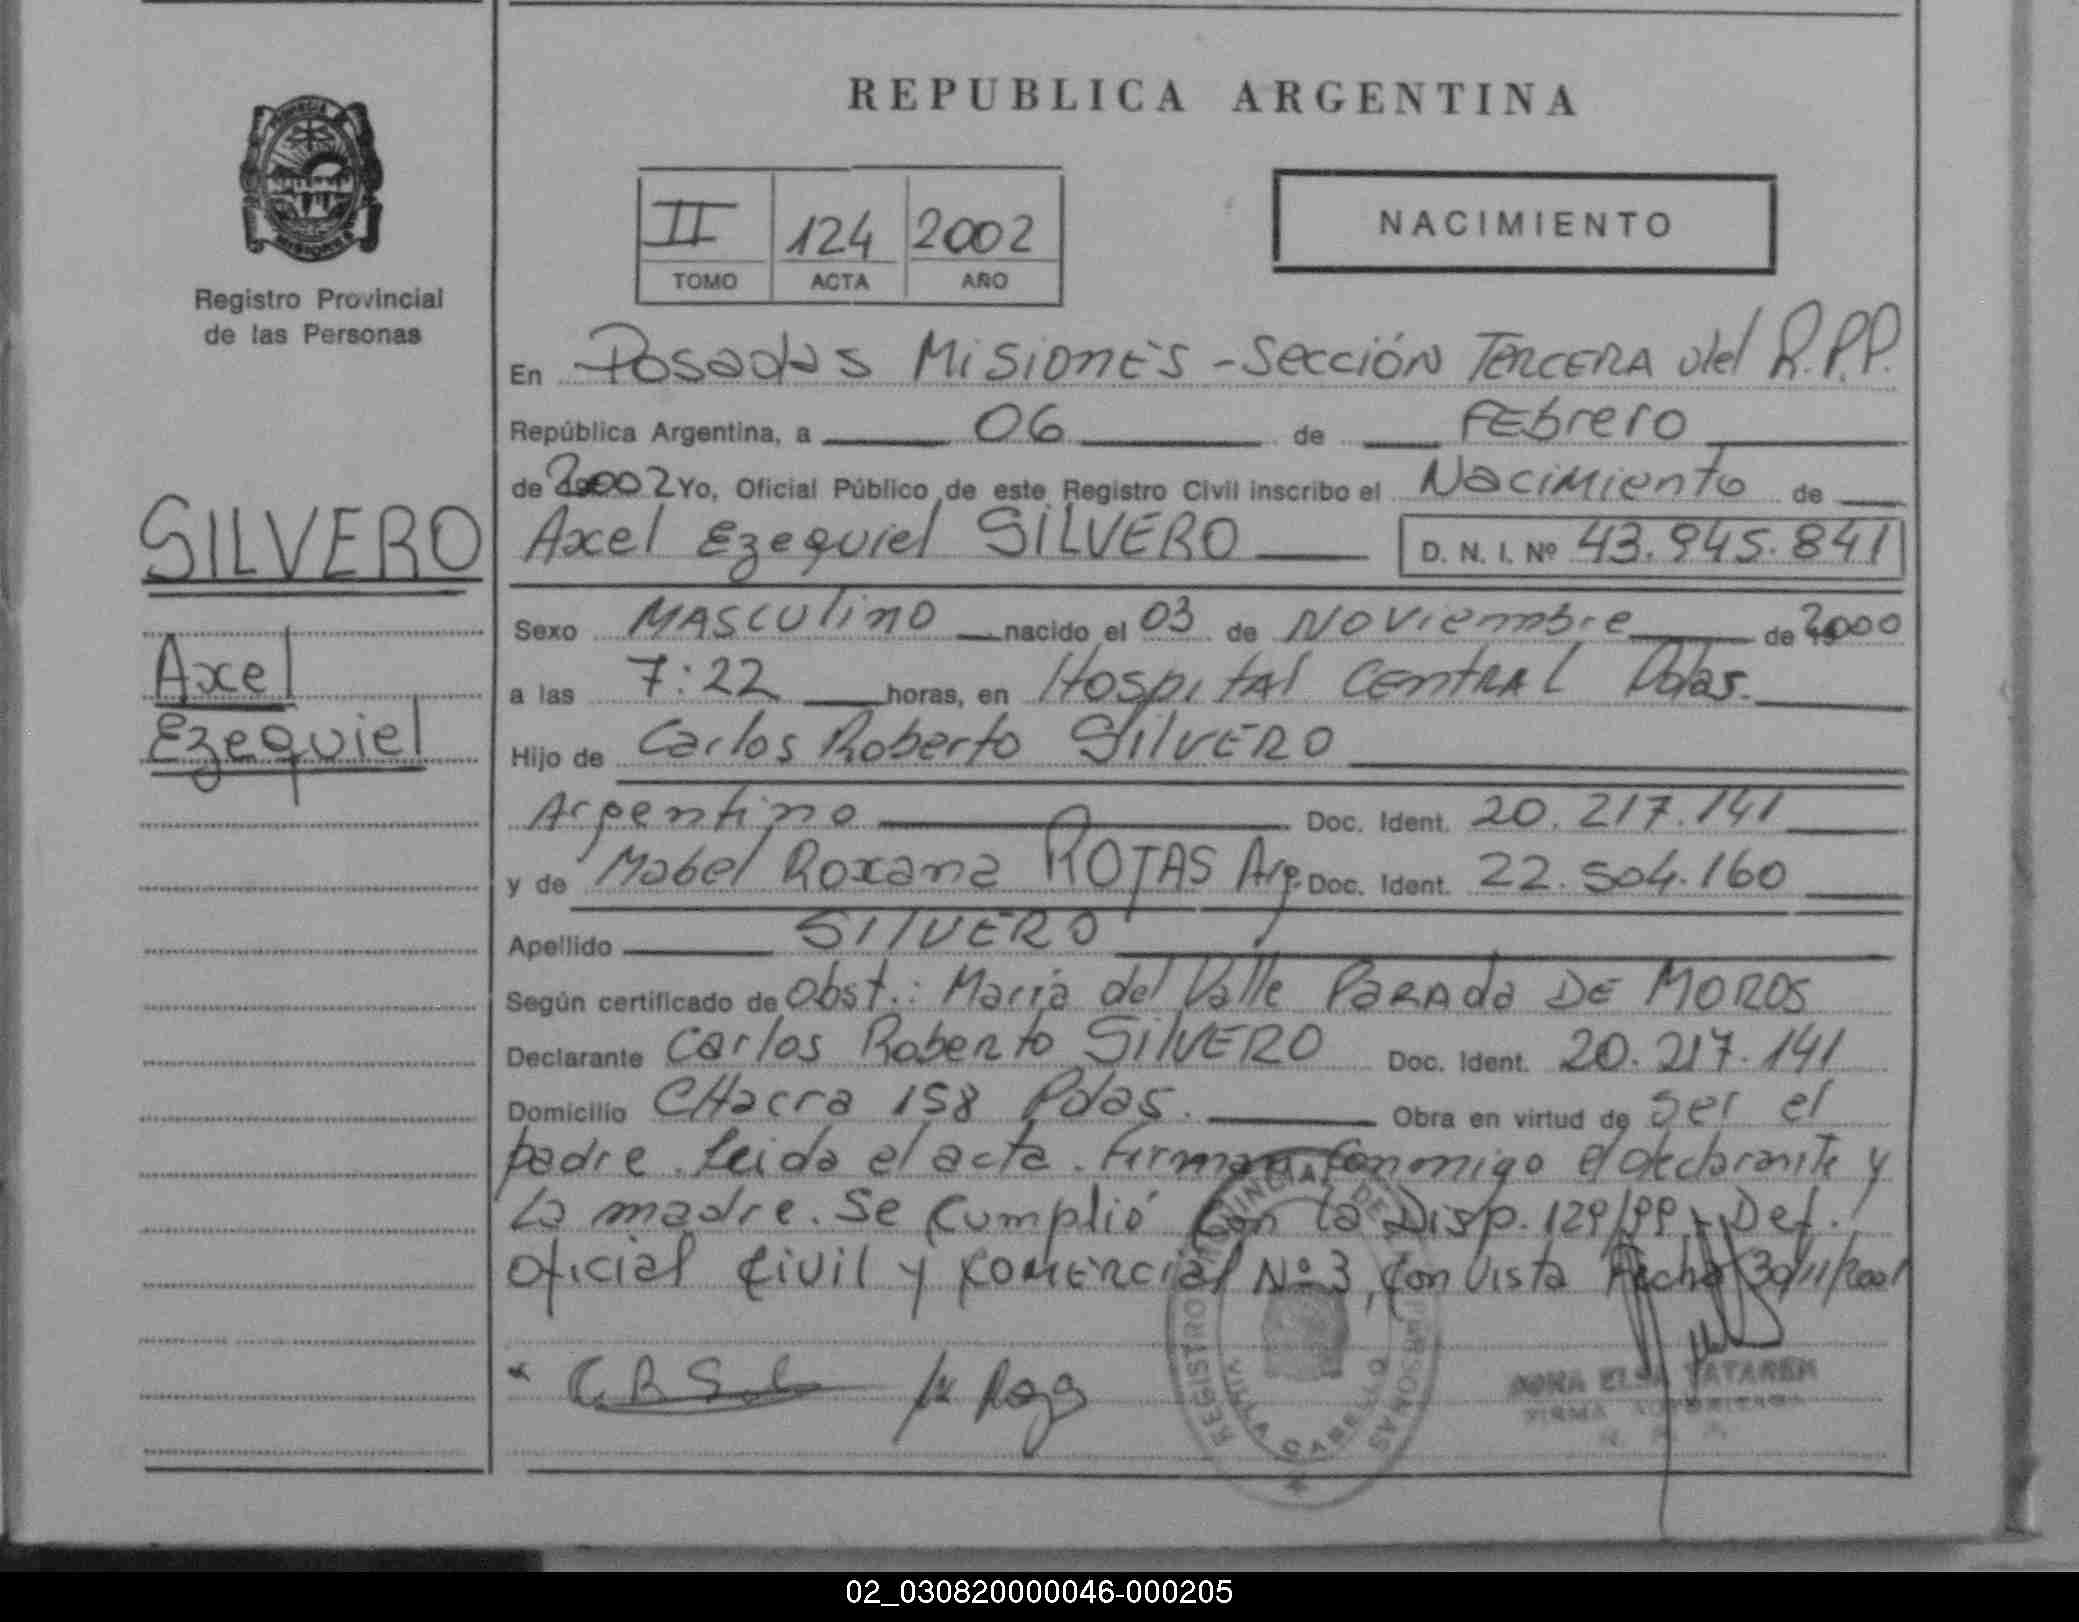 REPUBLICA ARGENTINA
Registro Provincial
de las Personas
II 124 2002
TOMO ACTA AÑO
NACIMIENTO
SILVERO
Axel
Ezequiel
En Posadas Misiones - Sección Tercera del R.P.P.
República Argentina, a 06 de Febrero
de 2002 Yo, Oficial Público de este Registro Civil inscribo el Nacimiento de
Axel Ezequiel SILVERO D. N. I. Nº 43.945.841
Sexo Masculino nacido el 03 de Noviembre de 2000
a las 7:22 horas, en Hospital Central Pdas.
Hijo de Carlos Roberto Silvero
Argentino Doc. Ident. 20.217.141
y de Mabel Roxana ROJAS Arg. Doc. Ident. 22.504.160
Apellido SILVERO
Según certificado de Obst.: Maria del Valle Parada DE MOROS
Declarante Carlos Roberto SILVERO Doc. Ident. 20.217.141
Domicilio CHacra 158 Pdas. Obra en virtud de ser el
padre. Leida el acta. Firman conmigo el declarante y
la madre. Se cumplió con la Disp. 129/99. Def.
oficial Civil y Comercial Nº 3, con vista Fecha 30/11/2001
REGISTRO PROVINCIAL DE PERSONAS
VILLA CABELLO
02_030820000046-000205